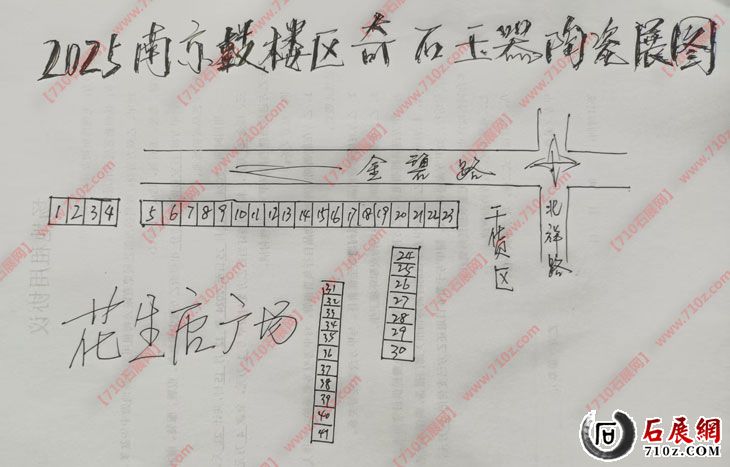 2025南京鼓楼区奇石玉器陶瓷展图
金碧路
1 2 3 4 5 6 7 8 9 10 11 12 13 14 15 16 17 18 19 20 21 22 23
干货区
北祥路
24
25
26
27
28
29
30
31
32
33
34
35
36
37
38
39
40
41
花生店广场
【710石展网】
www.710z.com
石展網
710z.com